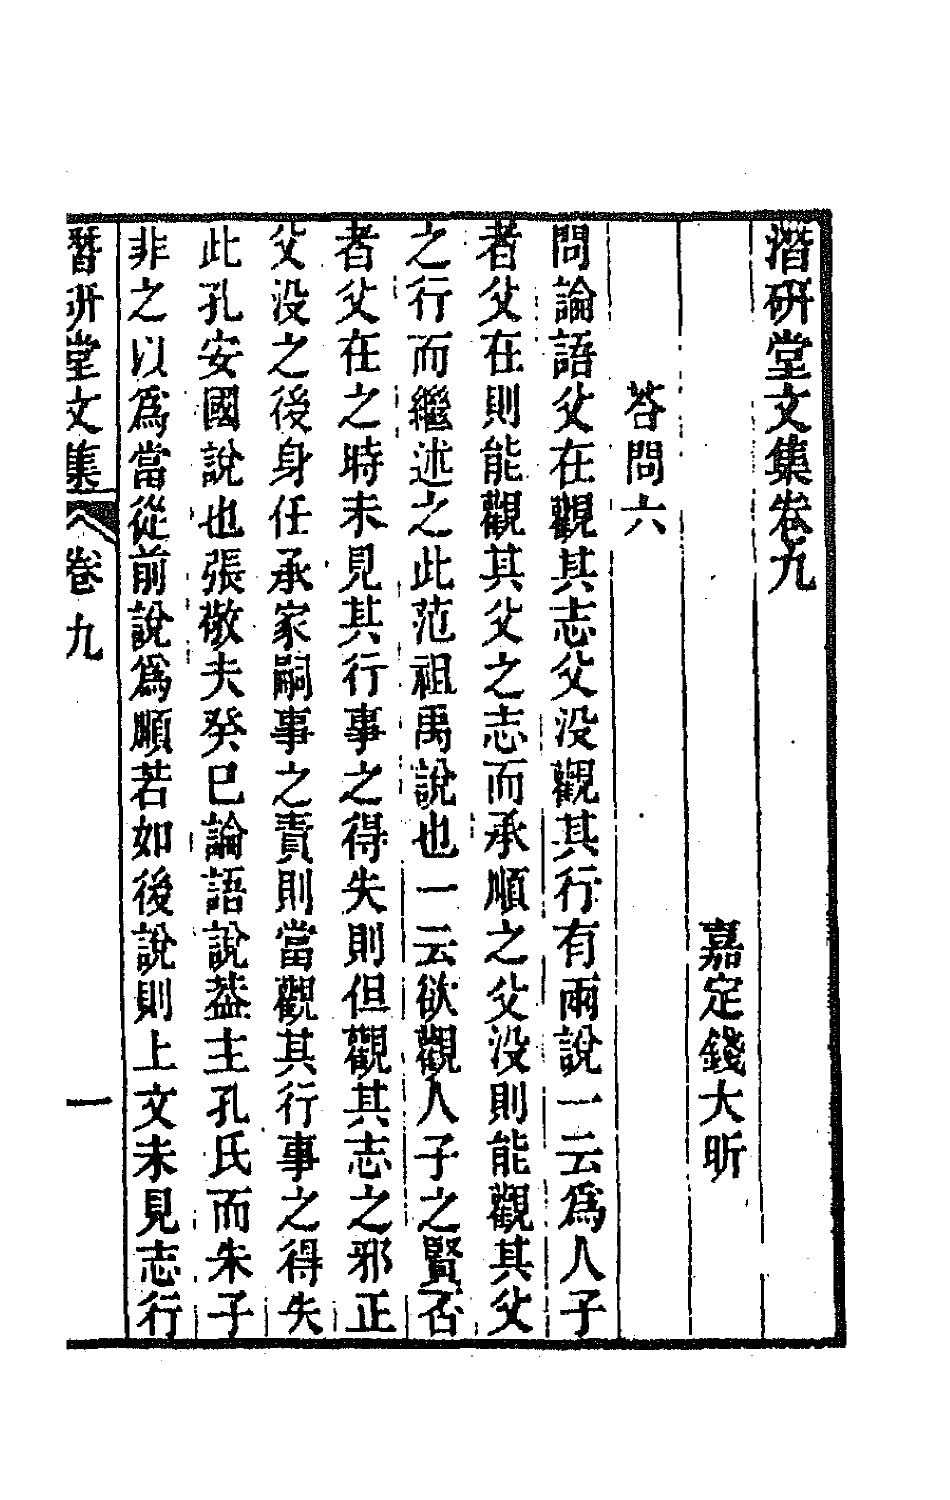 潛硏堂文集卷九
嘉定錢大昕
荅問六
問論語父在觀其志父没觀其行有兩說一云爲人子
者父在則能觀其父之志而承順之父没則能觀其父
之行而繼述之此范祖禹說也一云欲觀人子之賢否
者父在之時未見其行事之得失則但觀其志之邪正
父没之後身任承家嗣事之責則當觀其行事之得失
此孔安國說也張敬夫癸巳論語說葢主孔氏而朱子
非之以爲當從前說爲順若如後說則上文未見志行
潛硏堂文集 卷九 一